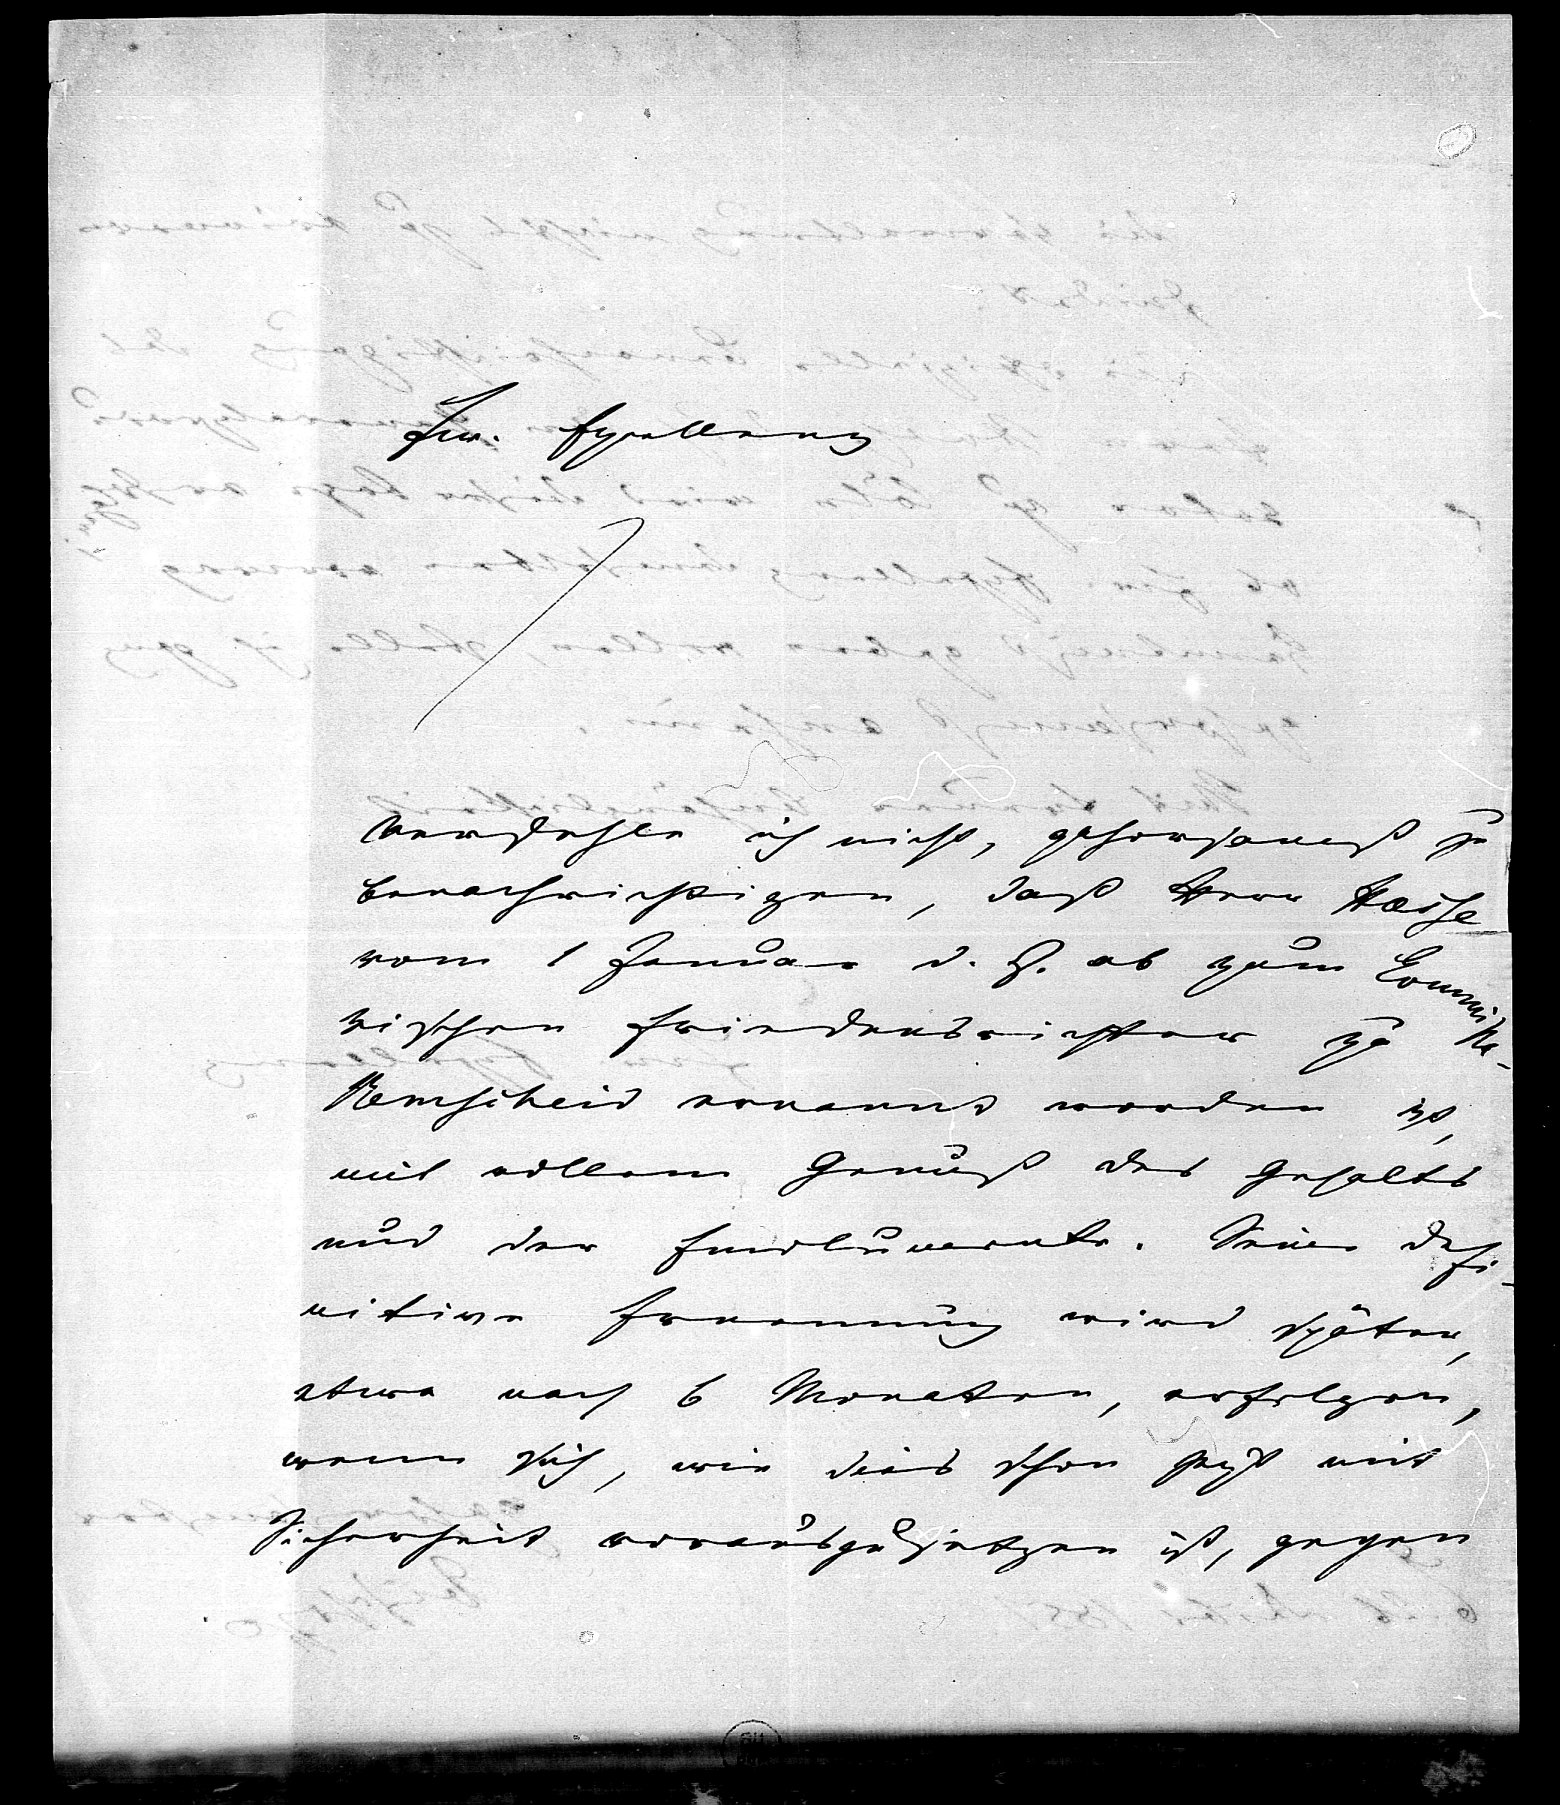 Ew. Excellenz
verfehle ich nicht, gehorsamst zu
benachrichtigen, daß Herr Hasse
vom 1 Januar d. J. ab zum Commissa-
rischen Friedensrichter zu
Remscheid ernannt worden ist,
mit vollem Genuß des Gehalts
und der Emolumente. Seine defi-
nitive Ernennung wird später,
etwa nach 6 Monaten, erfolgen,
wenn sich, wie dies schon jetzt mit
Sicherheit vorauszusetzen ist, gegen